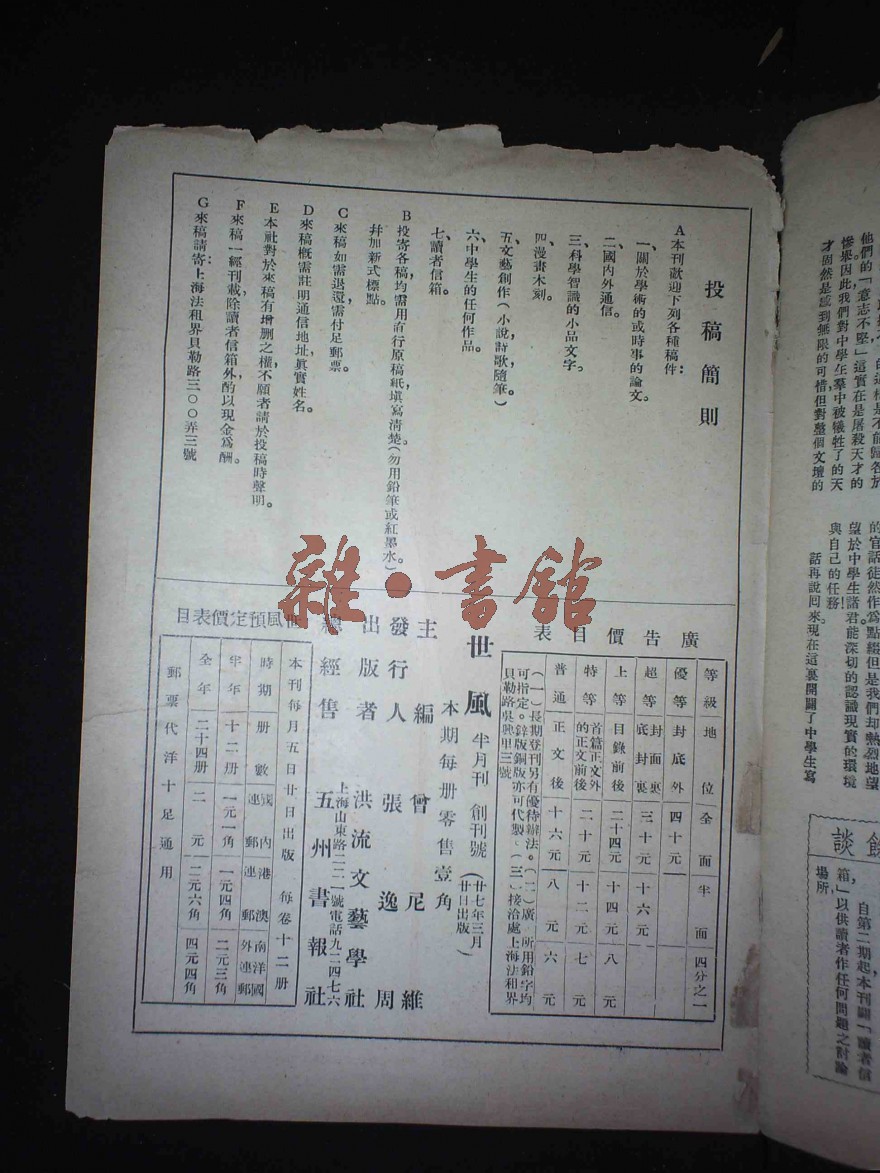 投稿簡則
A本刊歡迎下列各種稿件：
一、關於學術的或時事的論文。
二、國內外通信。
三、科學智識的小品文字。
四、漫畫木刻。
五、文藝創作（小說，詩歌，隨筆。）
六、中學生的任何作品。
七、讀者信箱。
B投寄各稿，均需用直行原稿紙填寫清楚（勿用鉛筆或紅墨水。）
幷加新式標點。
C來稿如需退還需付足郵票。
D來稿概需註明通信地址，眞實姓名。
E本社對於來稿有增删之權，不願者請於投稿時聲明。
F來稿一經刊載，除讀者信箱外酌以現金爲酬。
G來稿請寄：上海法租界貝勒路三〇〇弄三號
廣告價目表
等級 地位 全面 半面 四分之一
優等 封底外 四十元
超等 封面裏 底封裏 三十元 十六元
上等 目錄前後 二十四元 十四元 八元
特等 首篇正文外的正文前後 二十元 十二元 七元
普通 正文後 十六元 八元 六元
（一）長期登刊另有優待辦法。（二）廣 所用鉛字均
可指定。鋅版銅版亦可代製。（三）接洽處上海法租界
貝勒路吳興里三號
世風 半月刊 創刊號（廿七年三月廿日出版）
本期每册零售壹角
主編 曾尼維
發行人 張逸周
出版者 洪流文藝學社
上海山東路二二一號電話九二四七六
總經售 五州書報社
世風預定價表目
本刊每月五日廿日出版 每卷十二册
時期 册數 連郵 國內 連郵 港澳 南洋國外連郵
半年 十二册 一元一角 一元四角 二元三角
全年 二十四册 二元 二元六角 四元四角
郵票代洋十足通用
雜·書館
他們的，「意志不堅」這實在是屠殺天才的
慘舉因此我們對中學生羣中被犧牲了的天
才固然是感到無限的可惜，但對整個文壇的
的官話徒然作爲點綴但是我們却熱烈地望
望於中學生諸君能深切的認識現實的環境
與自己的任務！
話再說回來，現在這裏開闢了中學生寫
餘談
自第二期起，本刊闢「讀者信
箱」以供讀者作任何問題之討論
場所，